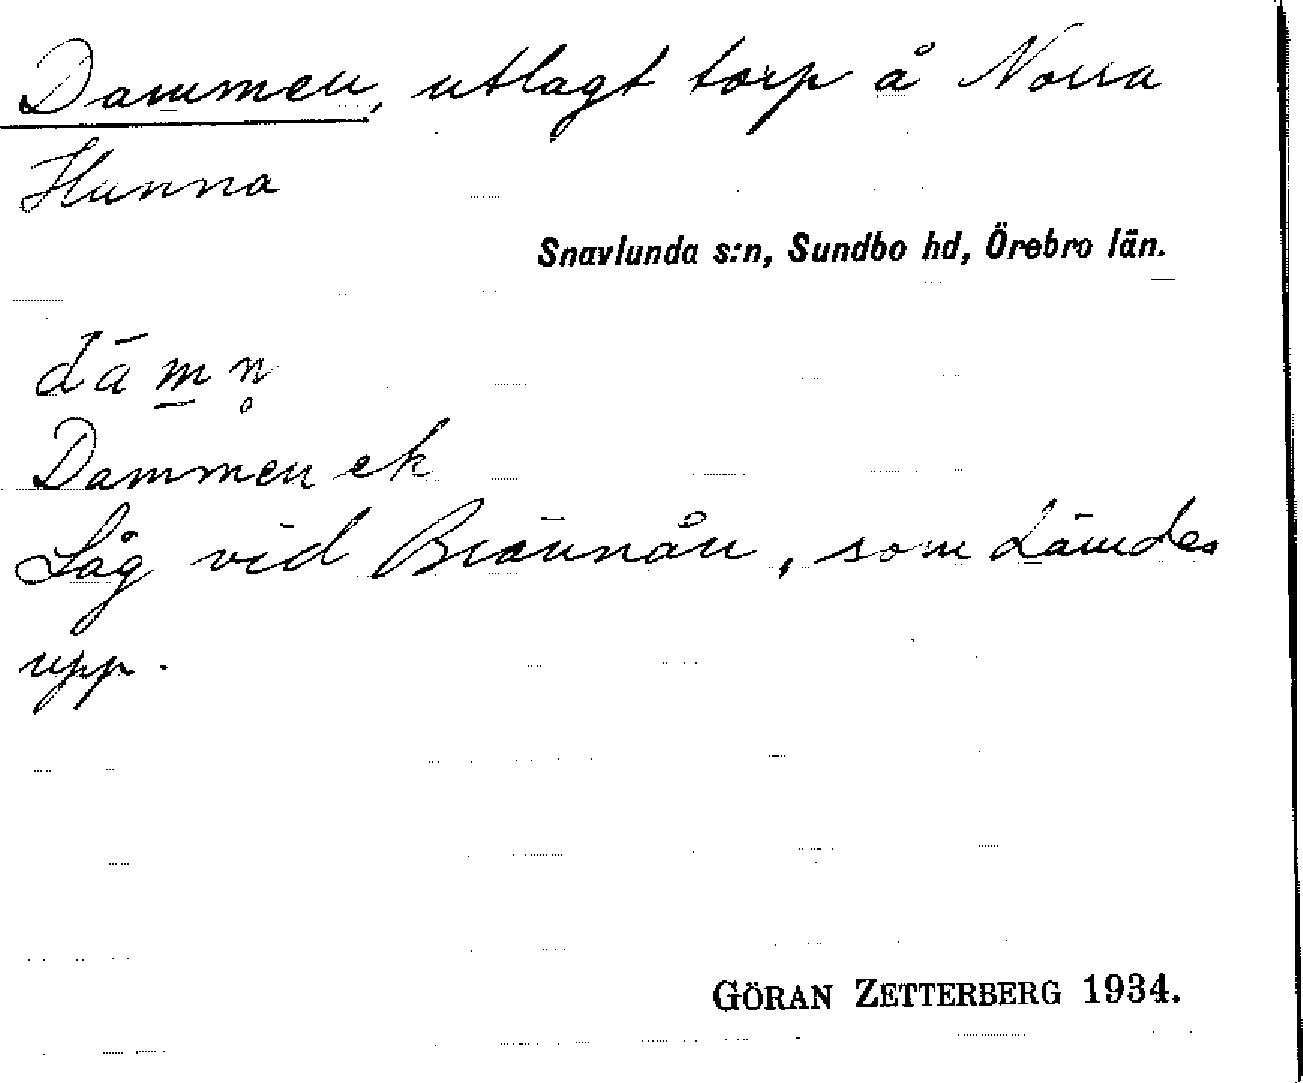 Dammen, utlagt torp å Norra
Hunna
Snavlunda s:n, Sundbo hd, Örebro län.
dām̲n̥
Dammen ek
Låg vid Brännån, som dämdes
upp.
GÖRAN ZETTERBERG 1934.